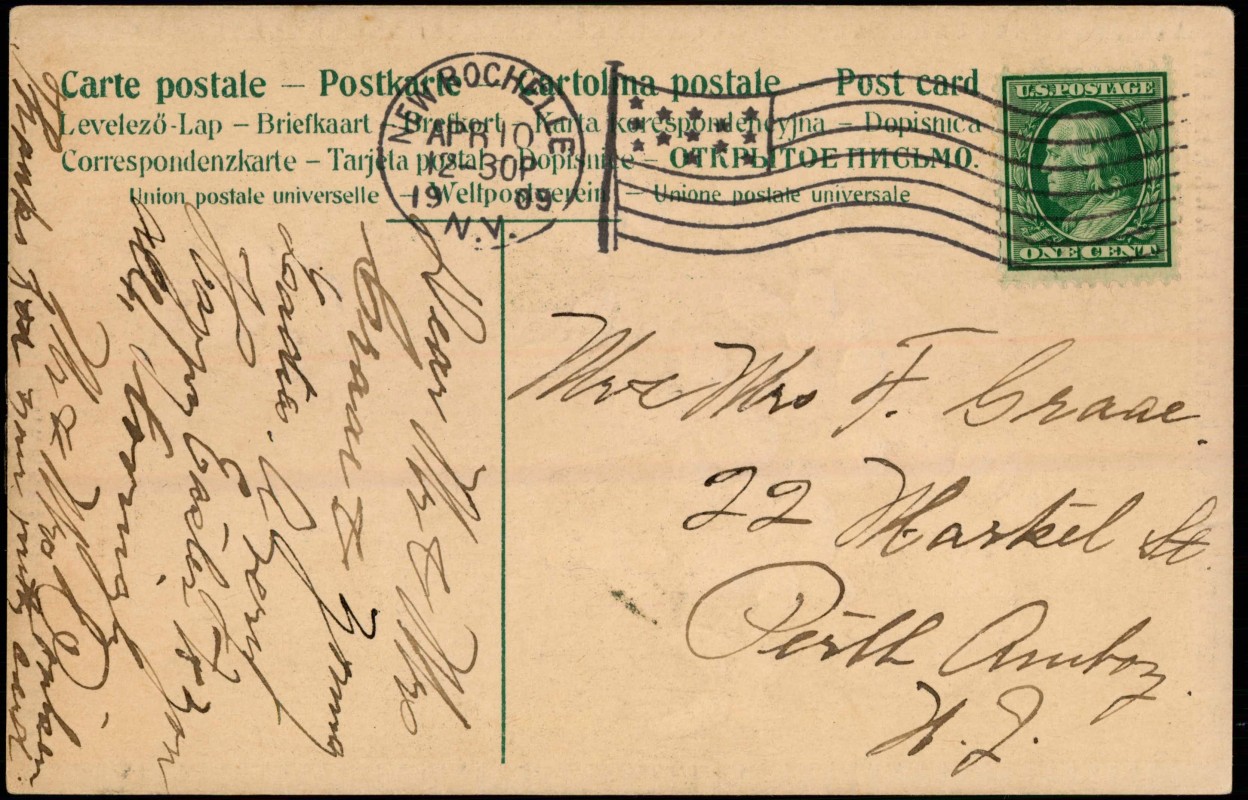 Carte postale – Postkarte – Cartolina postale – Post card
Levelező-Lap – Briefkaart – Brefkort – Karta korespondencyjna – Dopisnica
Correspondenzkarte – Tarjeta postal – Dopisnice – ОТКРЫТОЕ ПИСЬМО.
Union postale universelle – Weltpostverein – Unione postale universale
NEW ROCHELLE
APR 10
12-30P
1909
N.Y.
U.S. POSTAGE
ONE CENT
Mr & Mrs F. Graae.
22 Market St.
Perth Amboy.
N.J.
Dear Mr & Mrs
Graae &
Happy Easter to you
All
Mr & Mrs
Thanks for your card.